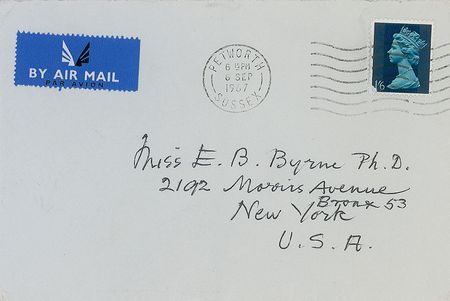 BY AIR MAIL
PAR AVION
PETWORTH
6 PM
6 SEP
1967
SUSSEX
1/6
Miss E. B. Byrne Ph. D.
2192 Morris Avenue
Bronx 53
New York
U. S. A.